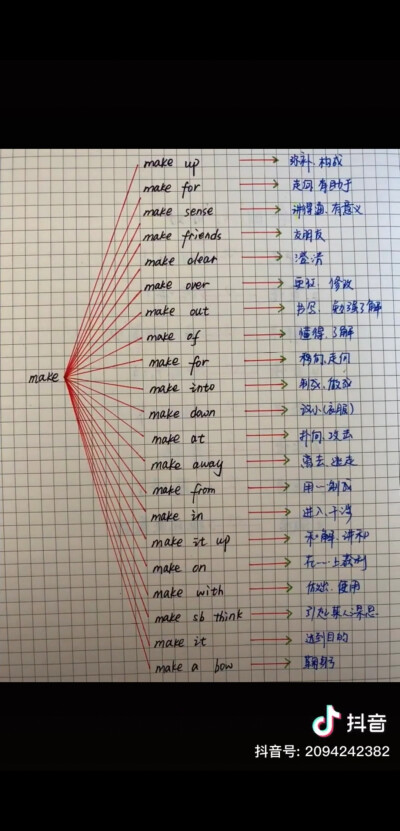 make up → 弥补、构成
make for → 走向、有助于
make sense → 讲得通、有意义
make friends → 交朋友
make clear → 澄清
make over → 更改、修改
make out → 书写、勉强了解
make of → 懂得、了解
make for → 移向、走向
make
make into → 制成、做成
make down → 改小(衣服)
make at → 扑向、攻击
make away → 离去、逃走
make from → 用一制成
make in → 进入、干涉
make it up → 和解、讲和
make on → 在……上获利
make with → 使用
make sb think → 引起某人深思
make it → 达到目的
make a bow → 鞠躬
抖音
抖音号: 2094242382